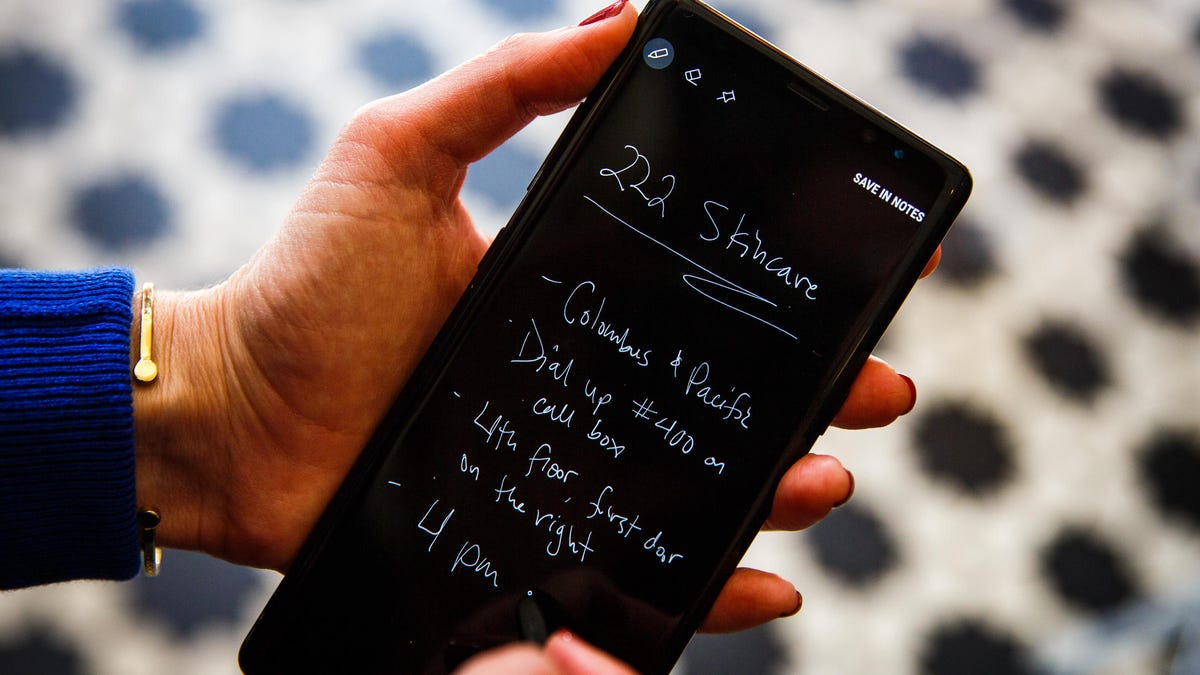 SAVE IN NOTES
222 Skincare
- Columbus & Pacific
- Dial up #400 on
call box
- 4th floor, first door
on the right
- 4 pm